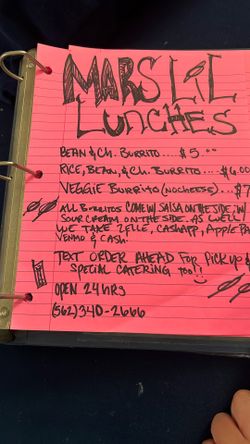 MARS LIL
LUNCHES
BEAN & CH. BURRITO.... $5.00
RICE, BEAN, & CH. BURRITO.... $6.00
VEGGIE BURRITO (NO CHEESE).... $7
ALL BURRITOS COME W/ SALSA ON THE SIDE, W/
SOUR CREAM ON THE SIDE. AS WELL!
WE TAKE ZELLE, CASHAPP, APPLE PA
VENMO & CASH.
TEXT ORDER AHEAD FOR PICK UP &
SPECIAL CATERING too!!
OPEN 24HRS
(562)340-2666